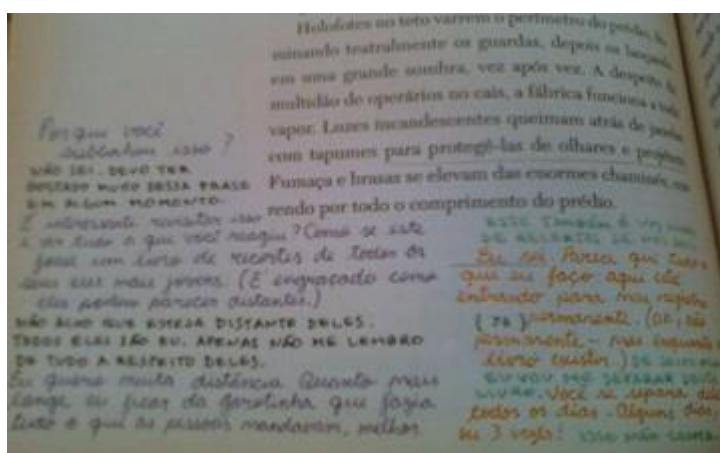 Holofotes no teto varrem o perímetro do prédio,
minando teatralmente os guardas, depois os
em uma grande sombra, vez após vez. A despeito
multidão de operários no cais, a fábrica funciona a
vapor. Luzes incandescentes queimam atrás de
com tapumes para protegê-las de olhares e
Fumaça e brasas se elevam das enormes chaminés,
rendo por todo o comprimento do prédio.
Por que você
sublinhou isso?
NÃO SEI. DEVO TER
GOSTADO MUITO DESSA FRASE
EM ALGUM MOMENTO.
É interessante revisitar isso
e ver tudo a que você reagiu? Como se este
fosse um livro de recortes de todos os
seus eus mais jovens. (É engraçado como
eles podem parecer distantes.)
NÃO ACHO QUE ESTEJA DISTANTE DELES.
TODOS ELES SÃO EU. APENAS NÃO ME LEMBRO
DE TUDO A RESPEITO DELES.
Eu quero muita distância. Quanto mais
longe eu ficar da garotinha que fazia
tudo o que as pessoas mandavam, melhor.
ESTE TAMBÉM É
DE RECORTES
Eu sei. Parece que tudo
que eu faço aqui
entrando para meu registro
{ 76 } permanente. (OK,
permanente - mas enquanto
livro existir.)
EU VOU ME SEPARAR DESTE
LIVRO. Você se separa dele
todos os dias. Alguns dias,
3 vezes! ISSO NÃO CONTA